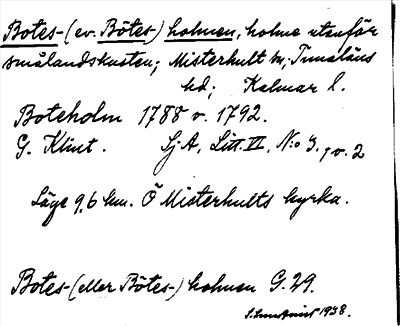 Botes- (ev. Bötes-) holmen, holme utanför
smålandskusten; Misterhult sn, Tunaläns
hd; Kalmar l.
Boteholm 1788 o. 1792.
G. Klint. Sj.A, Litt. VI, N:o 3, o. 2
Läge 9,6 km. Ö Misterhults kyrka.
Botes- (eller Bötes-) holmen G.29.
1938.